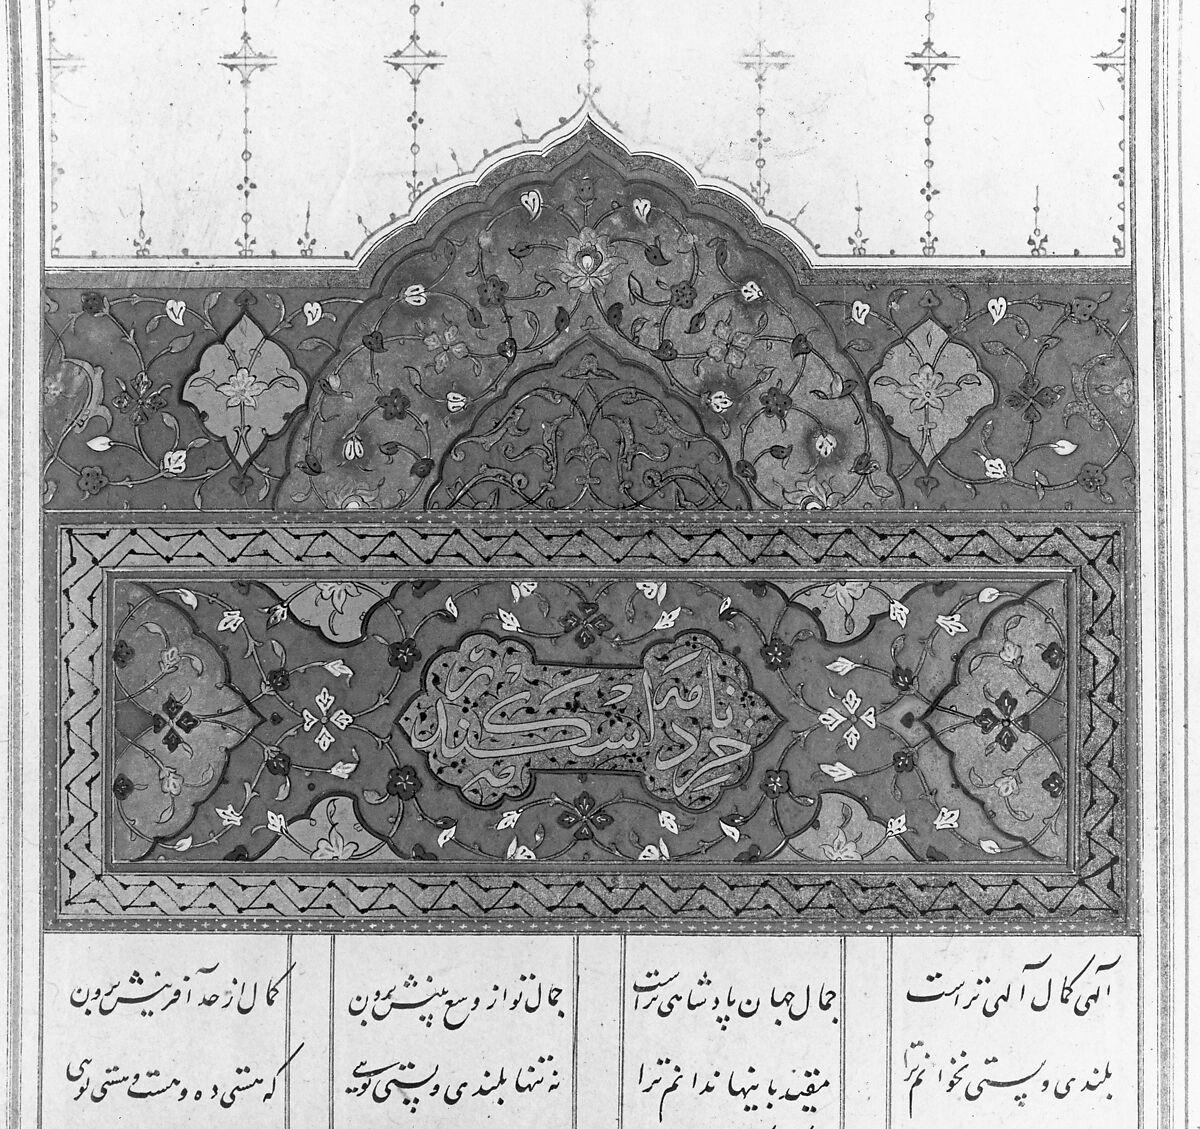 خرد نامه اسکندر
آلهی کمال آلهی تراست جمال جهان پادشاهی تراست جمال تو از وسع بینش برون کمال از حد آفرینش برون
بلندی و پستی نخوانم ترا مقید باینها ندانم ترا نه تنها بلندی و پستی تویی که هستی ده و هست و هستی تویی